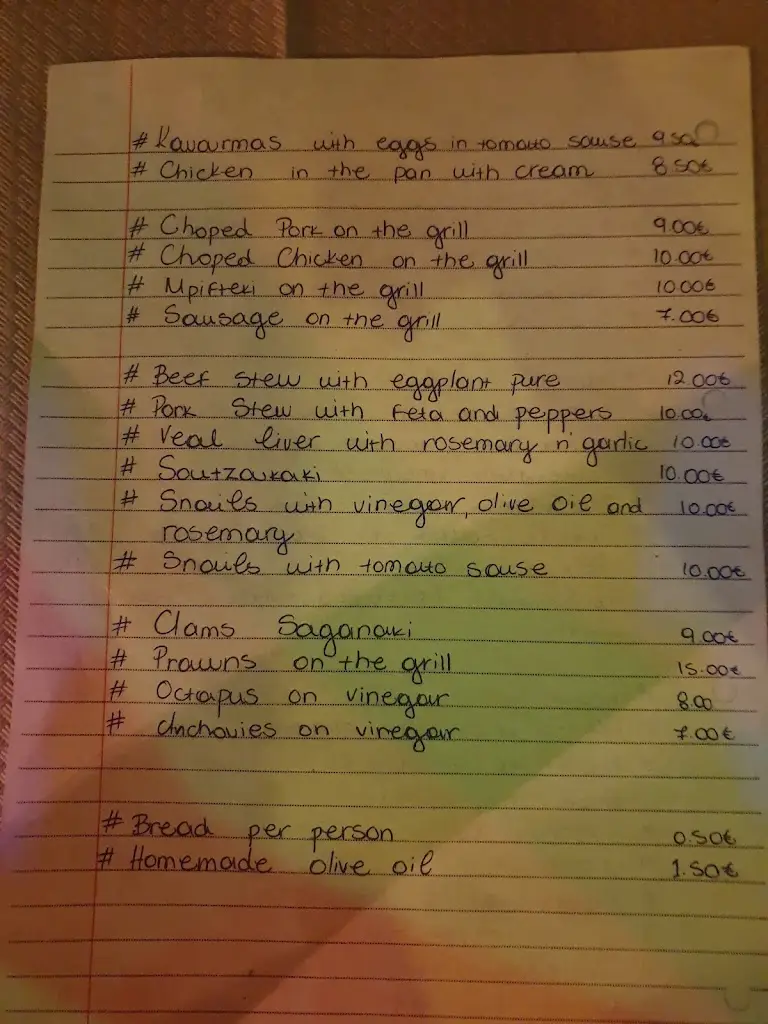 # Kavourmas with eggs in tomato sause 9.50
# Chicken in the pan with cream 8.50€
# Choped Pork on the grill 9.00€
# Choped Chicken on the grill 10.00€
# Mpifteki on the grill 10.00€
# Sausage on the grill 7.00€
# Beef stew with eggplant pure 12.00€
# Pork Stew with Feta and peppers 10.00€
# Veal liver with rosemary n' garlic 10.00€
# Soutzoukaki 10.00€
# Snails with vinegar, olive oil and 10.00€
rosemary
# Snails with tomato sause 10.00€
# Clams Saganaki 9.00€
# Prawns on the grill 15.00€
# Octapus on vinegar 8.00
# Anchovies on vinegar 7.00€
# Bread per person 0.50€
# Homemade olive oil 1.50€